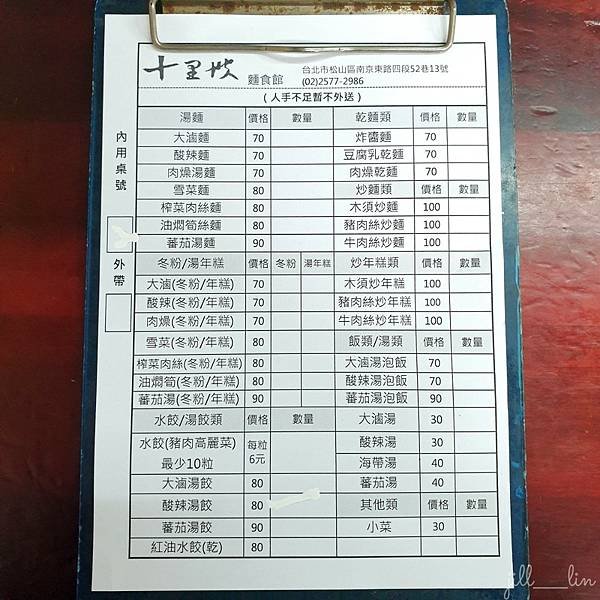 十里坡 麵食館
台北市松山區南京東路四段52巷13號
(02)2577-2986
(人手不足暫不外送)
內用桌號
外帶
湯麵 價格 數量
大滷麵 70
酸辣麵 70
肉燥湯麵 70
雪菜麵 80
榨菜肉絲麵 80
油燜筍絲麵 80
蕃茄湯麵 90
冬粉/湯年糕 價格 冬粉 湯年糕
大滷(冬粉/年糕) 70
酸辣(冬粉/年糕) 70
肉燥(冬粉/年糕) 70
雪菜(冬粉/年糕) 80
榨菜肉絲(冬粉/年糕) 80
油燜筍(冬粉/年糕) 80
蕃茄湯(冬粉/年糕) 90
水餃/湯餃類 價格 數量
水餃(豬肉高麗菜) 每粒
最少10粒 6元
大滷湯餃 80
酸辣湯餃 80
蕃茄湯餃 90
紅油水餃(乾) 80
乾麵類 價格 數量
炸醬麵 70
豆腐乳乾麵 70
肉燥乾麵 70
炒麵類 價格 數量
木須炒麵 100
豬肉絲炒麵 100
牛肉絲炒麵 100
炒年糕類 價格 數量
木須炒年糕 100
豬肉絲炒年糕 100
牛肉絲炒年糕 100
飯類/湯類 價格 數量
大滷湯泡飯 70
酸辣湯泡飯 70
蕃茄湯泡飯 90
大滷湯 30
酸辣湯 30
海帶湯 40
蕃茄湯 40
其他類 價格 數量
小菜 30
jill__lin